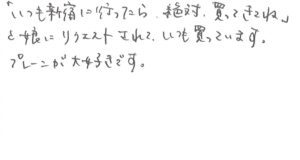 「いつも新宿に行ったら、絶対、買ってきてね」
と娘にリクエストされて、いつも買っています。
プレーンが大好きです。